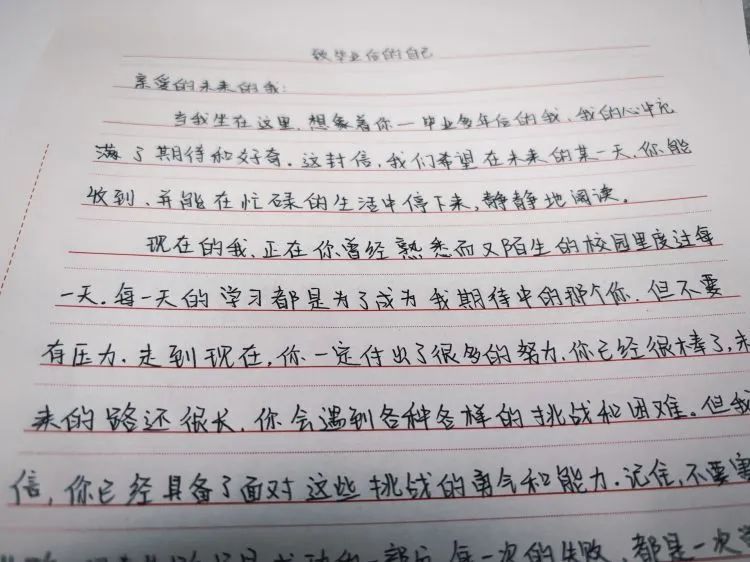 致毕业后的自己
亲爱的未来的我：
当我坐在这里，想象着你一毕业多年后的我，我的心中充
满了期待和好奇。这封信，我们希望在未来的某一天，你能
收到，并能在忙碌的生活中停下来，静静地阅读。
现在的我，正在你曾经熟悉而又陌生的校园里度过每
一天。每一天的学习都是为了成为我期待中的那个你，但不要
有压力，走到现在，你一定付出了很多的努力，你已经很棒了，未
来的路还很长，你会遇到各种各样的挑战和困难。但我
信，你已经具备了面对这些挑战的勇气和能力。记住，不要害
是成功的一部分，每一次的失败，都是一次